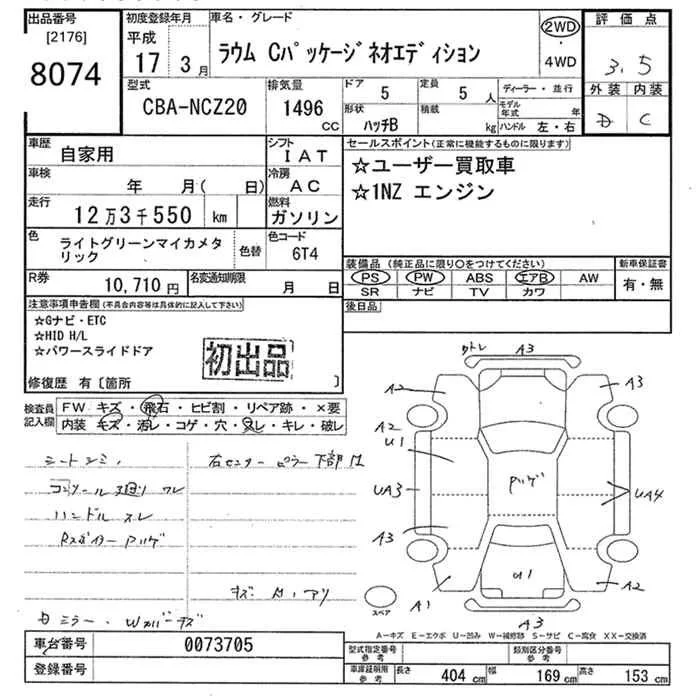 出品番号
[2176]
8074
初度登録年月
平成
17 3月
車名・グレード
ラウム Cパッケージネオエディション
2WD
・
4WD
評価点
3.5
外装 内装
D C
型式
CBA-NCZ20
排気量
1496
CC
ドア
5
定員
5 人
形状
ハッチB
積載
kg
ディーラー・並行
モデル年式 年
ハンドル 左・右
車歴
自家用
シフト
IAT
車検
年 月( 日)
冷房
AC
走行
12万3千550 km
燃料
ガソリン
色
ライトグリーンマイカメタリック
色替
色コード
6T4
R券
10,710円
名変通知期限
月 日
セールスポイント(正常に機能するものに限ります)
☆ユーザー買取車
☆1NZ エンジン
装備品(純正品に限り○をつけてください)
PS PW ABS エアB AW
SR ナビ TV カワ
新車保証書
有・無
後日品
注意事項申告欄(不具合内容等は具体的に記入して下さい)
☆Gナビ・ETC
☆HID H/L
☆パワースライドドア
初出品
修復歴 有〔箇所 〕
検査員記入欄
FW キズ・飛石・ヒビ割・リペア跡・×要
内装 キズ・汚レ・コゲ・穴・スレ・キレ・破レ
シートシミ,
右センターピラー下部
コンソール廻り ワレ
ハンドル スレ
キズ A、アリ
ミラー・Wカバーキズ
カトレ A3
A2
A3
A2
U1
UA3
A3
UA4
A1
U1
A2
A3
スペア
A―キズ E―エクボ U―凹み W―補修跡 S―サビ C―腐食 XX―交換済
車台番号
0073705
登録番号
型式指定番号
参考
類別区分番号
参考
車庫証明用
参考
長さ 404 cm 幅 169 cm 高さ 153 cm